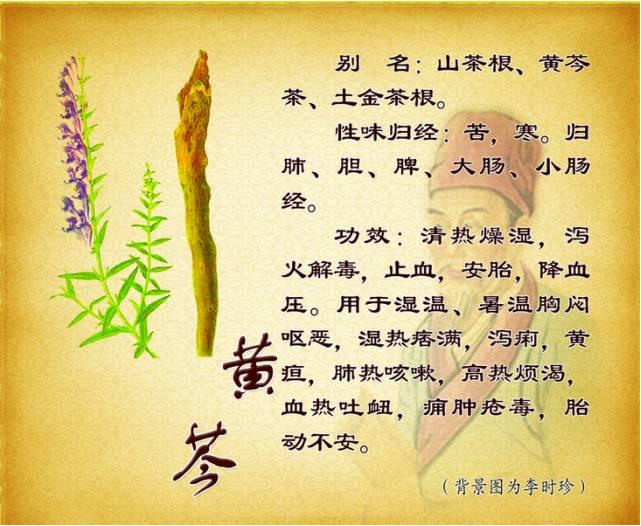 别 名：山茶根、黄芩
茶、土金茶根。
性味归经：苦，寒。归
肺、胆、脾、大肠、小肠
经。
功效：清热燥湿，泻
火解毒，止血，安胎，降血
压。用于湿温、暑温胸闷
呕恶，湿热痞满，泻痢，黄
疸，肺热咳嗽，高热烦渴，
血热吐衄，痈肿疮毒，胎
动不安。
黄
芩
（背景图为李时珍）